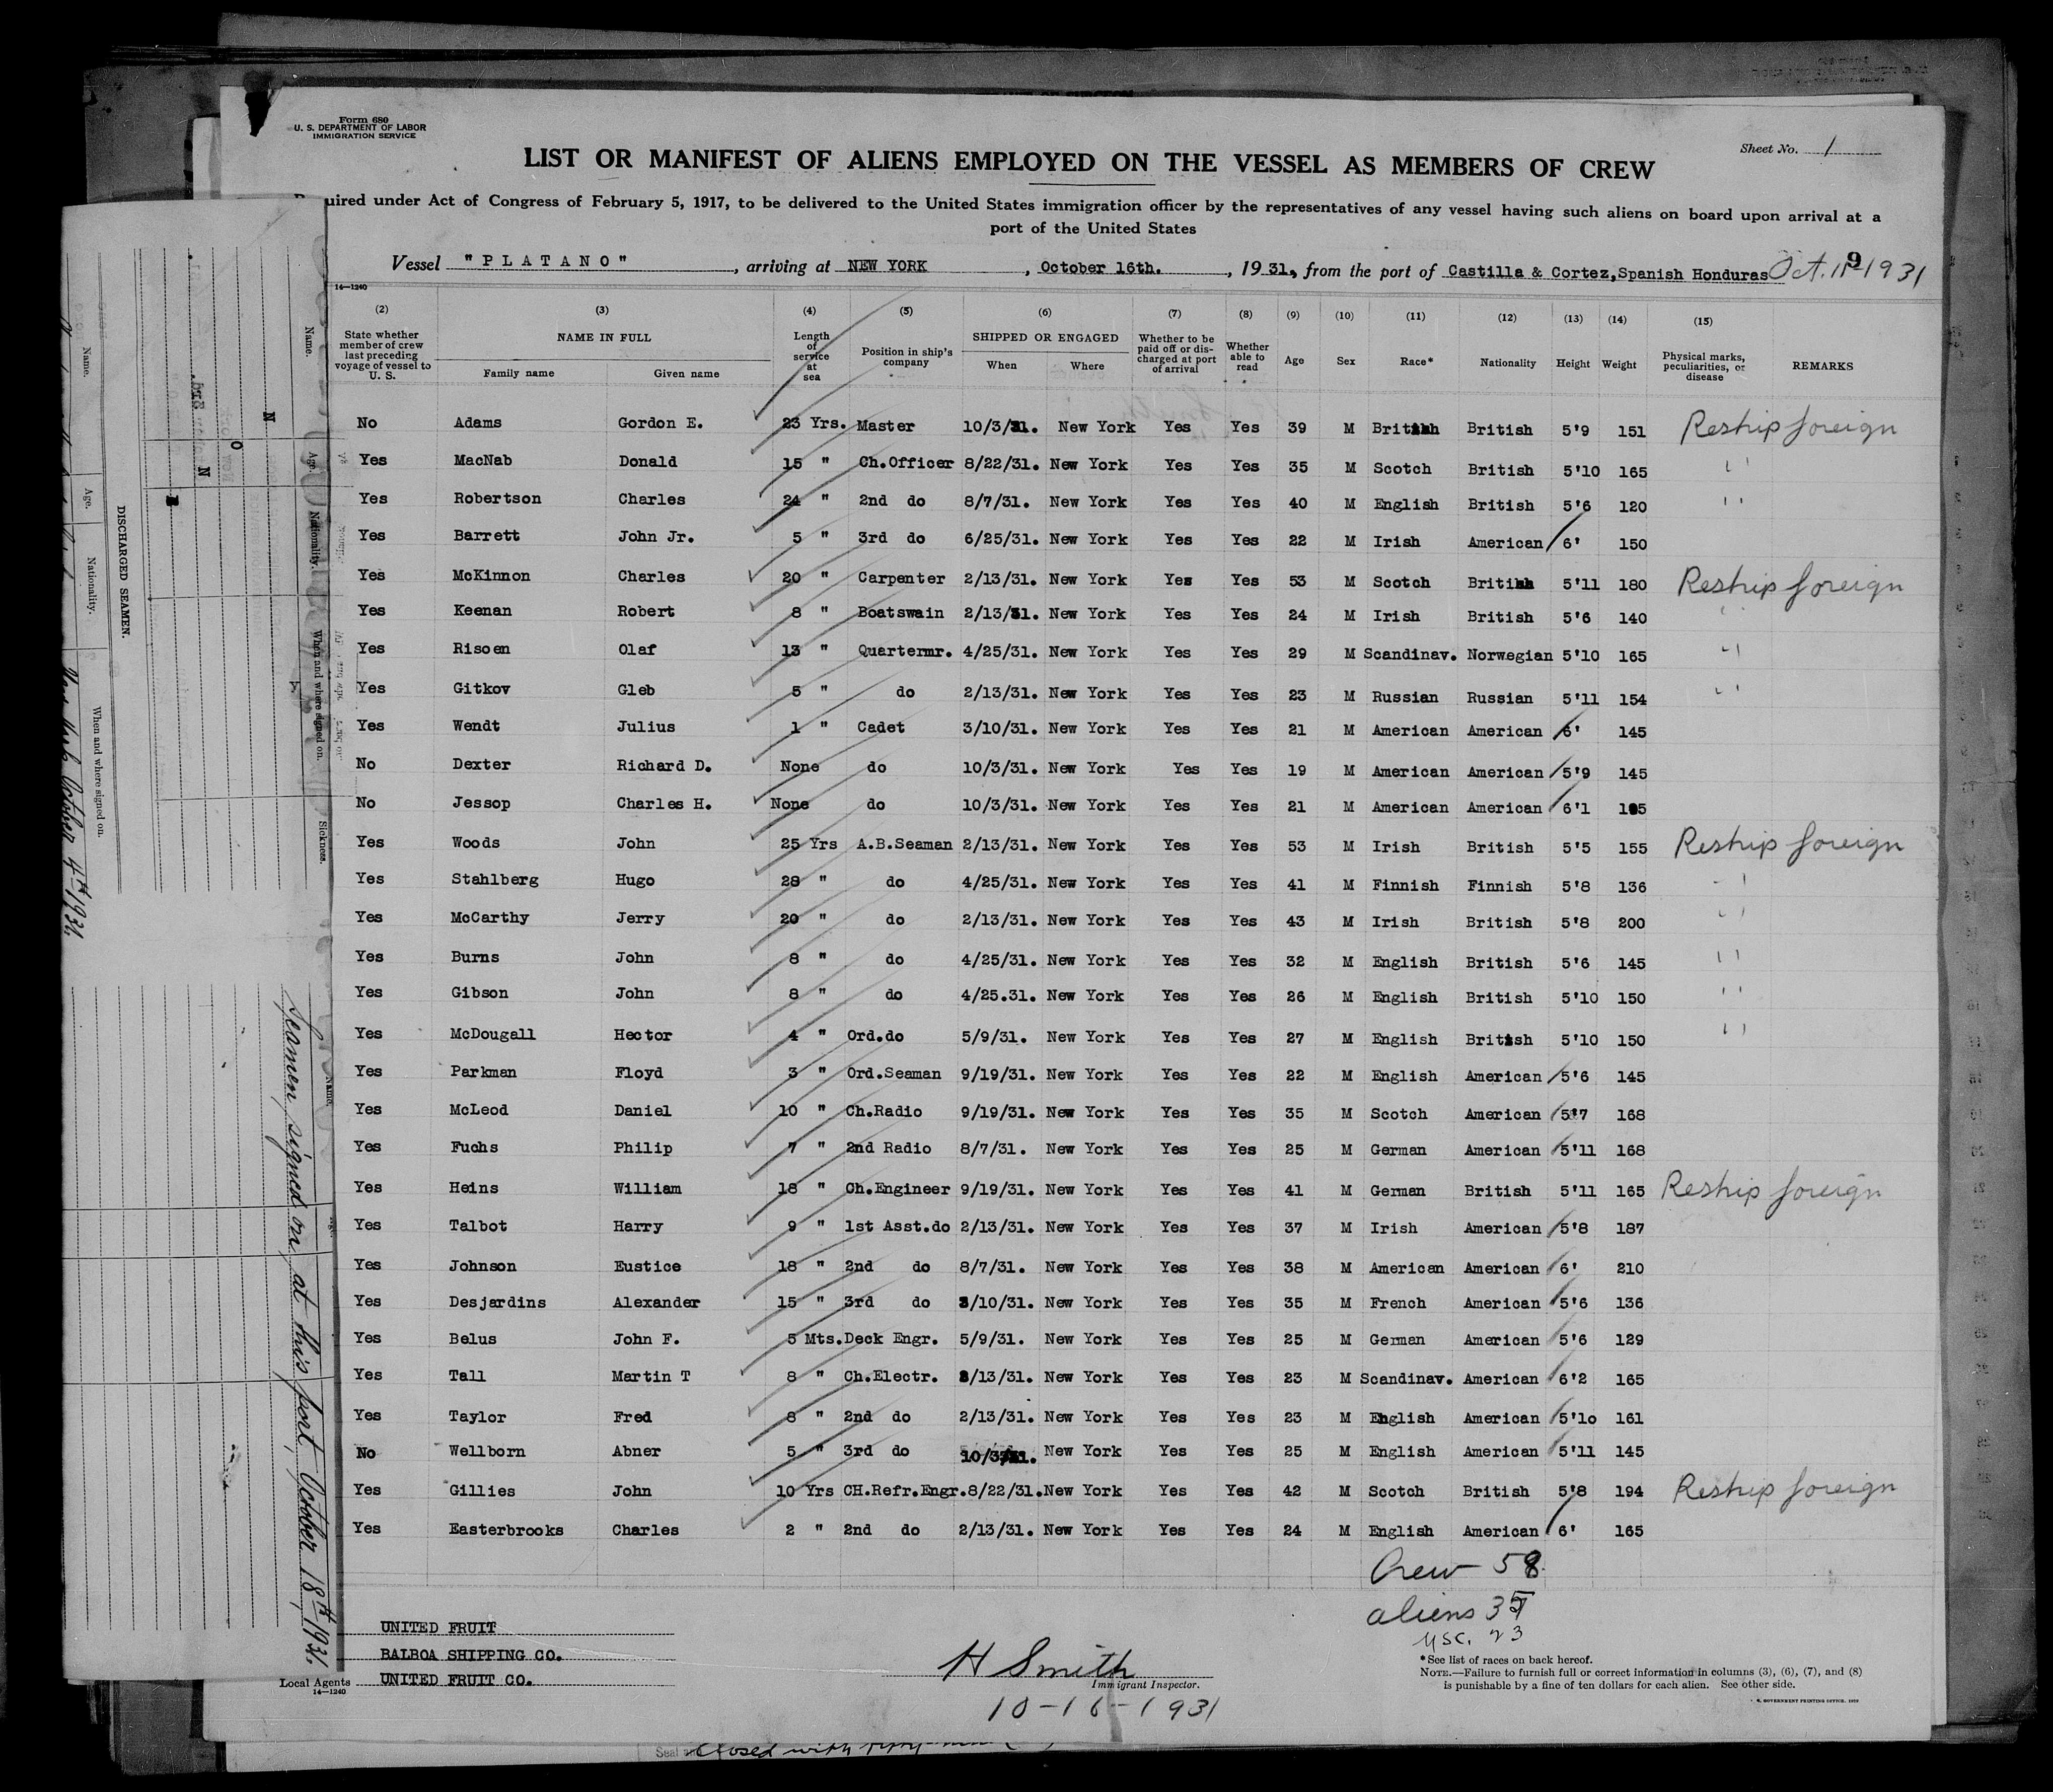 Form 680
U. S. DEPARTMENT OF LABOR
IMMIGRATION SERVICE
Sheet No. 1
LIST OR MANIFEST OF ALIENS EMPLOYED ON THE VESSEL AS MEMBERS OF CREW
uired under Act of Congress of February 5, 1917, to be delivered to the United States immigration officer by the representatives of any vessel having such aliens on board upon arrival at a
port of the United States
Vessel "PLATANO", arriving at NEW YORK, October 16th., 1931, from the port of Castilla & Cortez, Spanish Honduras Oct. 1931
14—1240
(2) (3) (4) (5) (6) (7) (8) (9) (10) (11) (12) (13) (14) (15)
State whether member of crew last preceding voyage of vessel to U. S. | NAME IN FULL | Family name | Given name | Length of service at sea | Position in ship's company | SHIPPED OR ENGAGED | When | Where | Whether to be paid off or discharged at port of arrival | Whether able to read | Age | Sex | Race* | Nationality | Height | Weight | Physical marks, peculiarities, or disease | REMARKS
No Adams Gordon E. 23 Yrs. Master 10/3/31. New York Yes Yes 39 M British British 5'9 151 Reship foreign
Yes MacNab Donald 15 " Ch.Officer 8/22/31. New York Yes Yes 35 M Scotch British 5'10 165 " "
Yes Robertson Charles 24 " 2nd do 8/7/31. New York Yes Yes 40 M English British 5'6 120 " "
Yes Barrett John Jr. 5 " 3rd do 6/25/31. New York Yes Yes 22 M Irish American 6' 150
Yes McKinnon Charles 20 " Carpenter 2/13/31. New York Yes Yes 53 M Scotch British 5'11 180 Reship foreign
Yes Keenan Robert 8 " Boatswain 2/13/31. New York Yes Yes 24 M Irish British 5'6 140 " "
Yes Risoen Olaf 13 " Quartermr. 4/25/31. New York Yes Yes 29 M Scandinav. Norwegian 5'10 165 " "
Yes Gitkov Gleb 5 " do 2/13/31. New York Yes Yes 23 M Russian Russian 5'11 154 " "
Yes Wendt Julius 1 " Cadet 3/10/31. New York Yes Yes 21 M American American 6' 145
No Dexter Richard D. None do 10/3/31. New York Yes Yes 19 M American American 5'9 145
No Jessop Charles H. None do 10/3/31. New York Yes Yes 21 M American American 6'1
Yes Woods John 25 Yrs A.B.Seaman 2/13/31. New York Yes Yes 53 M Irish British 5'5 155 Reship foreign
Yes Stahlberg Hugo 28 " do 4/25/31. New York Yes Yes 41 M Finnish Finnish 5'8 136 " "
Yes McCarthy Jerry 20 " do 2/13/31. New York Yes Yes 43 M Irish British 5'8 200 " "
Yes Burns John 8 " do 4/25/31. New York Yes Yes 32 M English British 5'6 145 " "
Yes Gibson John 8 " do 4/25.31. New York Yes Yes 26 M English British 5'10 150 " "
Yes McDougall Hector 4 " Ord.do 5/9/31. New York Yes Yes 27 M English British 5'10 150 " "
Yes Parkman Floyd 3 " Ord.Seaman 9/19/31. New York Yes Yes 22 M English American 5'6 145
Yes McLeod Daniel 10 " Ch.Radio 9/19/31. New York Yes Yes 35 M Scotch American 5'7 168
Yes Fuchs Philip 7 " 2nd Radio 8/7/31. New York Yes Yes 25 M German American 5'11 168
Yes Heins William 18 " Ch.Engineer 9/19/31. New York Yes Yes 41 M German British 5'11 165 Reship foreign
Yes Talbot Harry 9 " 1st Asst.do 2/13/31. New York Yes Yes 37 M Irish American 5'8 187
Yes Johnson Eustice 18 " 2nd do 8/7/31. New York Yes Yes 38 M American American 6' 210
Yes Desjardins Alexander 15 " 3rd do 3/10/31. New York Yes Yes 35 M French American 5'6 136
Yes Belus John F. 5 Mts. Deck Engr. 5/9/31. New York Yes Yes 25 M German American 5'6 129
Yes Tall Martin T 8 " Ch.Electr. 2/13/31. New York Yes Yes 23 M Scandinav. American 6'2 165
Yes Taylor Fred 8 " 2nd do 2/13/31. New York Yes Yes 23 M English American 5'10 161
No Wellborn Abner 5 " 3rd do 10/3/31. New York Yes Yes 25 M English American 5'11 145
Yes Gillies John 10 Yrs CH.Refr.Engr. 8/22/31. New York Yes Yes 42 M Scotch British 5'8 194 Reship foreign
Yes Easterbrooks Charles 2 " 2nd do 2/13/31. New York Yes Yes 24 M English American 6' 165
Crew 58
aliens 35
USC. 23
UNITED FRUIT
BALBOA SHIPPING CO.
Local Agents UNITED FRUIT CO.
14—1240
H Smith
Immigrant Inspector.
10-16-1931
*See list of races on back hereof.
NOTE.—Failure to furnish full or correct information in columns (3), (6), (7), and (8)
is punishable by a fine of ten dollars for each alien. See other side.
U. S. GOVERNMENT PRINTING OFFICE. 1929
closed with
Name. Age. Nationality. When and where signed on.
DISCHARGED SEAMEN.
Name. Age. Nationality. When and where signed on. Sickness.
NONE
New York October 4th 1931.
Seamen signed on at this port October 18th 1931.